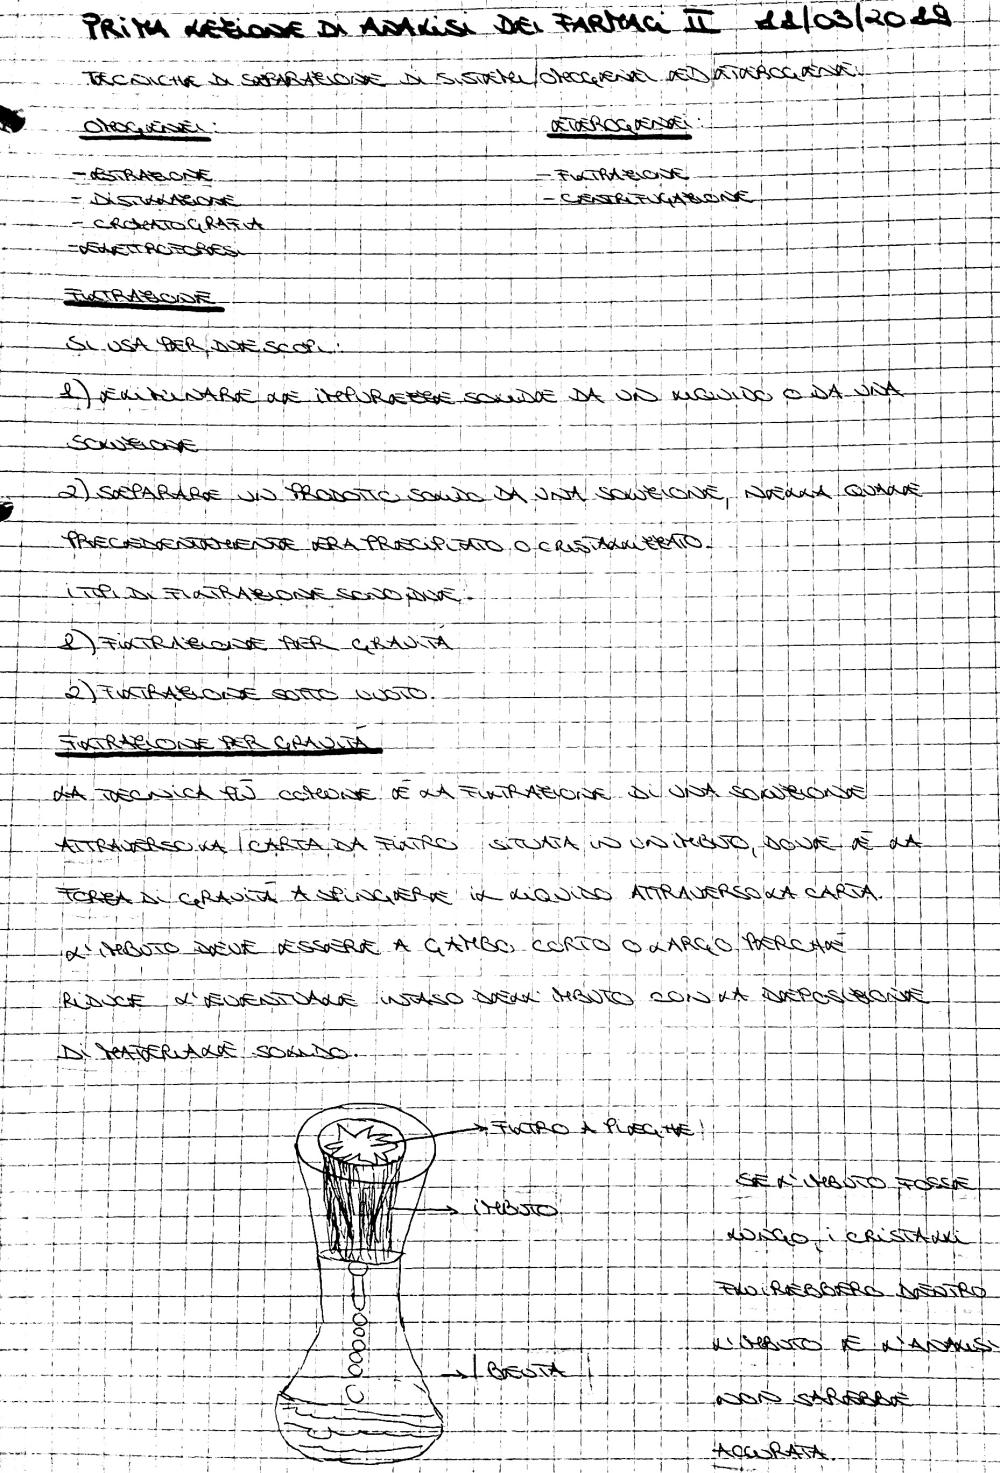 PRIMA LEZIONE DI ANALISI DEI FARMACI II 11/03/2019
TECNICHE DI SEPARAZIONE DI SISTEMI OMOGENEI ED ETEROGENEI.
OMOGENEI: ETEROGENEI:
- ESTRAZIONE - FILTRAZIONE
- DISTILLAZIONE - CENTRIFUGAZIONE
- CROMATOGRAFIA
- ELETTROFORESI
FILTRAZIONE
SI USA PER DUE SCOPI:
1) ELIMINARE LE IMPUREZZE SOLIDE DA UN LIQUIDO O DA UNA
SOLUZIONE
2) SEPARARE UN PRODOTTO SOLIDO DA UNA SOLUZIONE, NELLA QUALE
PRECEDENTEMENTE ERA PRECIPITATO O CRISTALLIZZATO.
I TIPI DI FILTRAZIONE SONO DUE:
1) FILTRAZIONE PER GRAVITÀ
2) FILTRAZIONE SOTTO VUOTO.
FILTRAZIONE PER GRAVITÀ
LA TECNICA PIÙ COMUNE È LA FILTRAZIONE DI UNA SOLUZIONE
ATTRAVERSO LA CARTA DA FILTRO SITUATA IN UN IMBUTO, DOVE È LA
FORZA DI GRAVITÀ A SPINGERE IL LIQUIDO ATTRAVERSO LA CARTA.
L'IMBUTO DEVE ESSERE A GAMBO CORTO O LARGO PERCHÉ
RIDUCE L'EVENTUALE INTASO DELL'IMBUTO CON LA DEPOSIZIONE
DI MATERIALE SOLIDO.
FILTRO A PIEGHE!
IMBUTO
BEUTA
SE L'IMBUTO FOSSE
LUNGO, I CRISTALLI
FINIREBBERO DENTRO
L'IMBUTO E L'ANALISI
NON SAREBBE
ACCURATA.